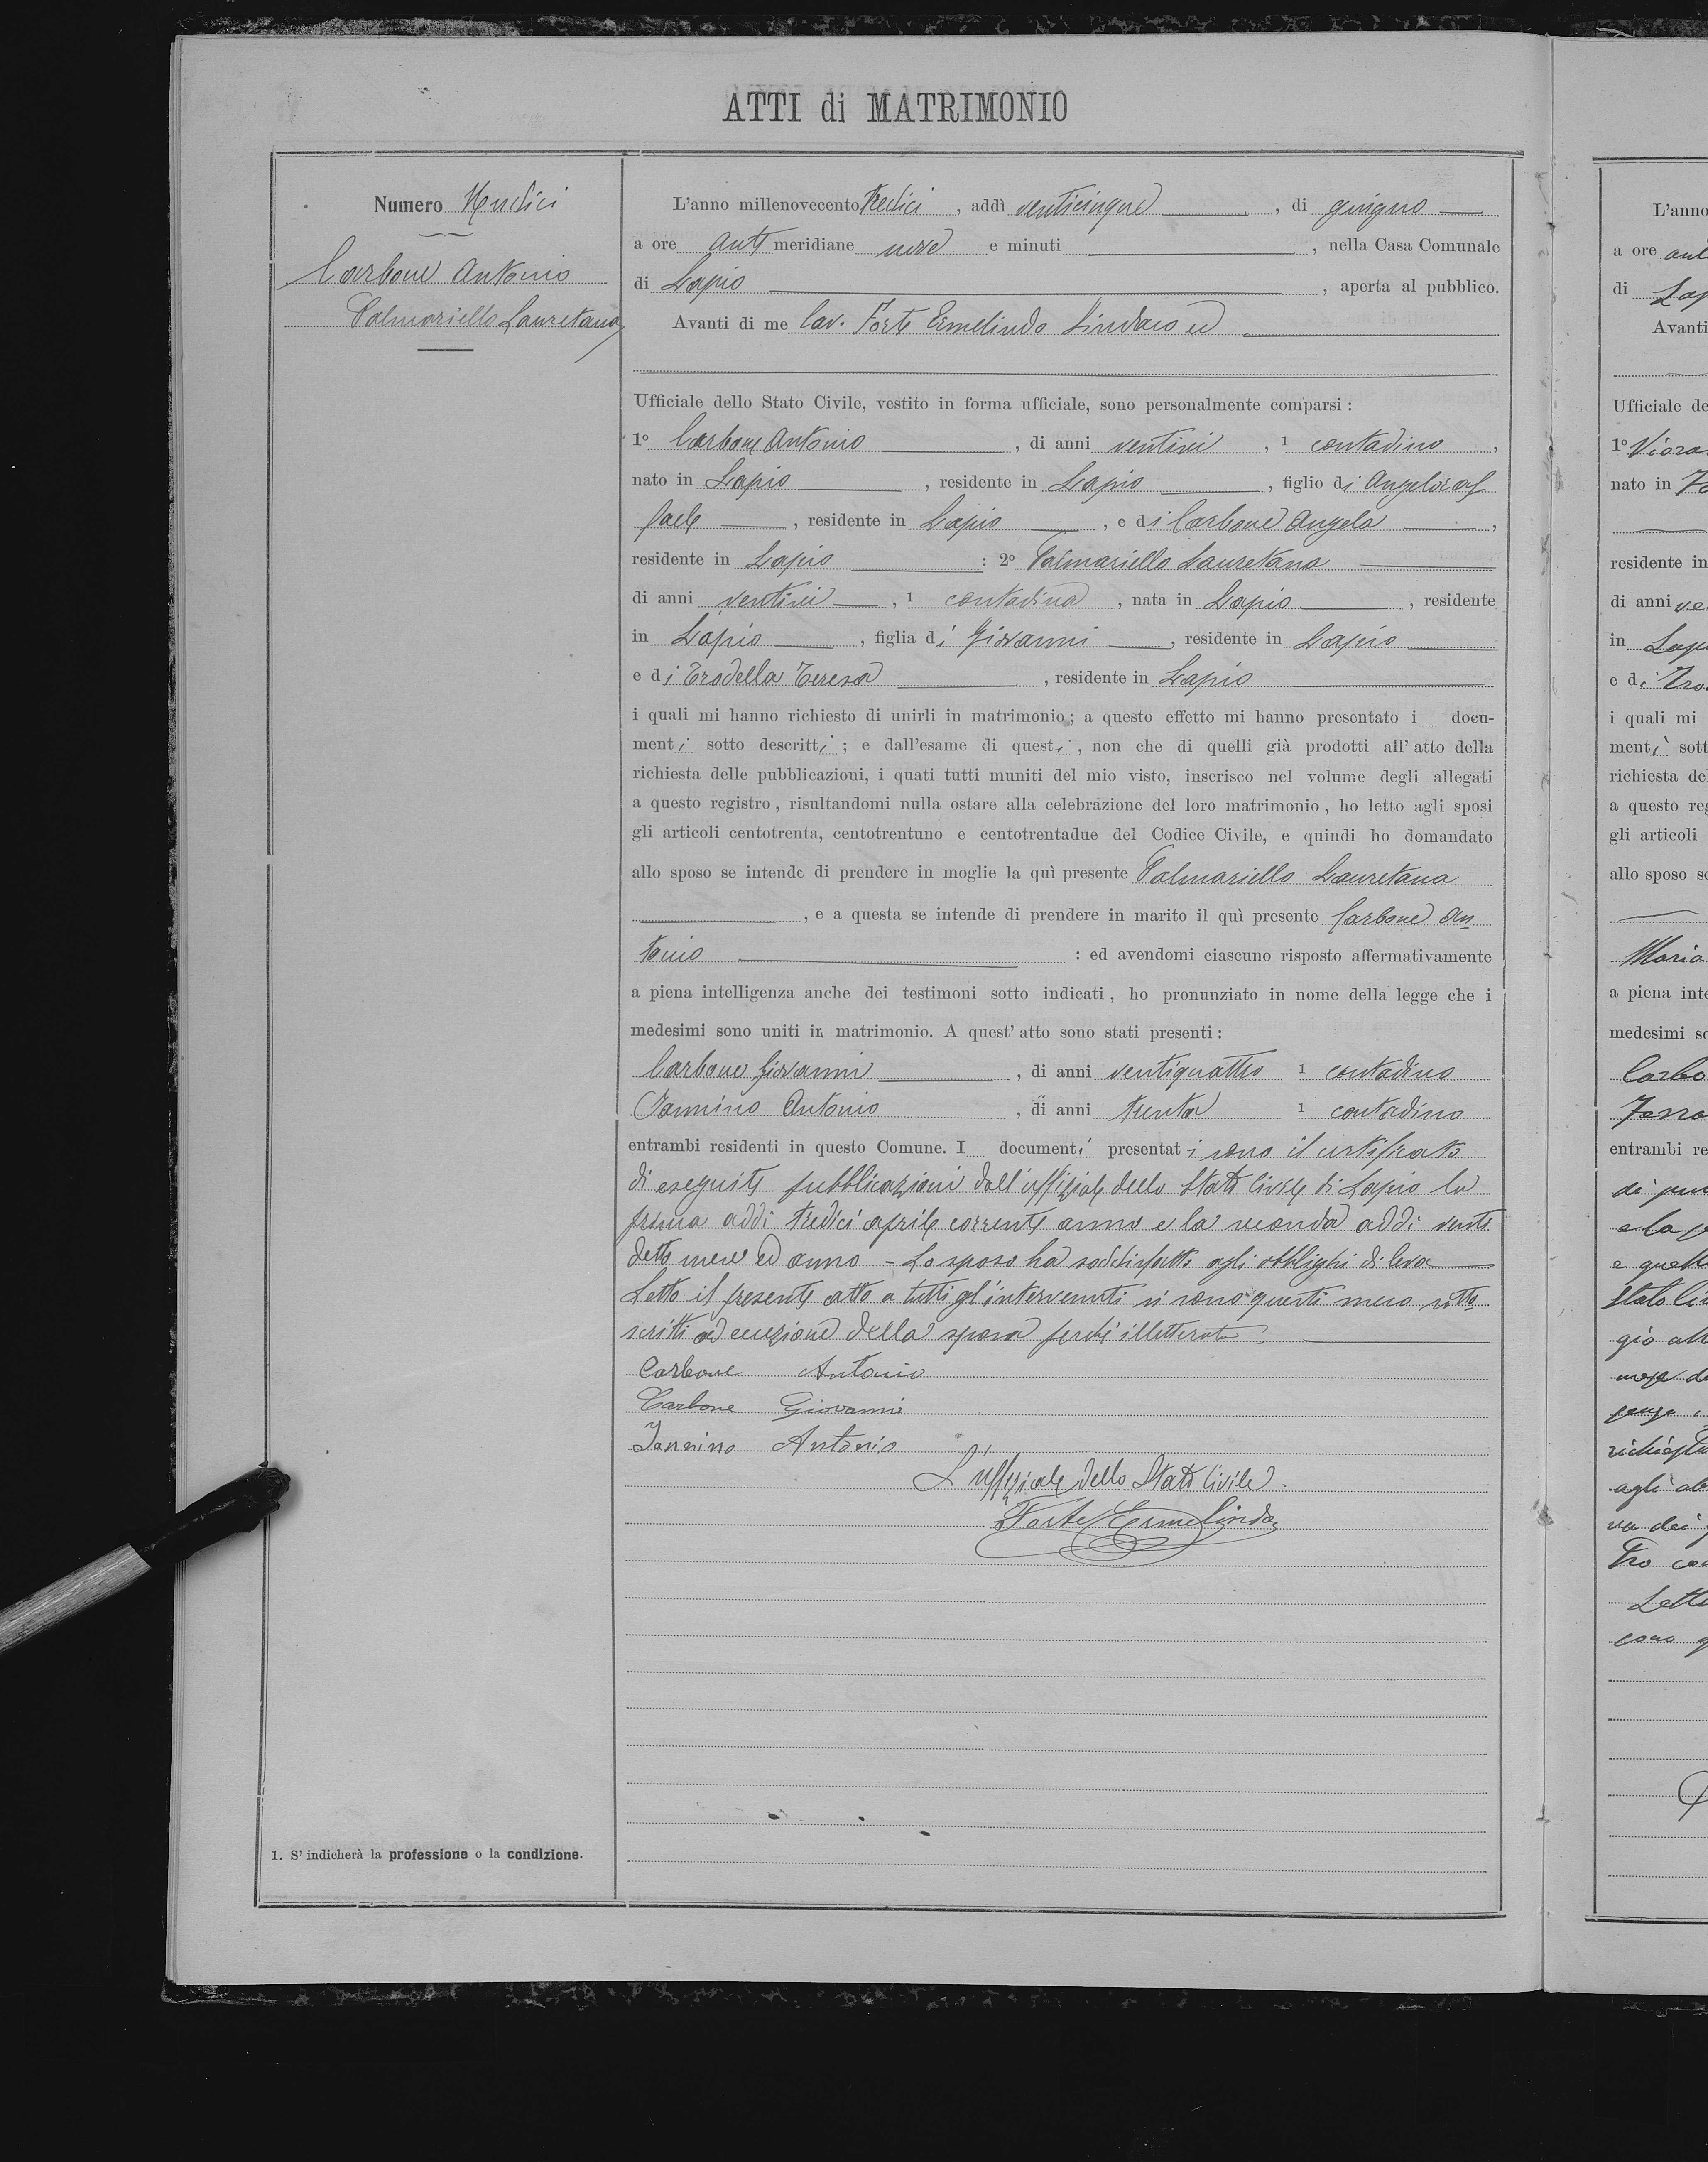 ATTI di MATRIMONIO
Numero Undici
Carbone Antonio
Palmariello Lauretana
1. S' indicherà la professione o la condizione.
L'anno millenovecento tredici, addì venticinque, di giugno
a ore ante meridiane nove e minuti , nella Casa Comunale
di Lapio , aperta al pubblico.
Avanti di me Cav. Forte Ermelindo Sindaco ed
Ufficiale dello Stato Civile, vestito in forma ufficiale, sono personalmente comparsi :
1º Carbone Antonio , di anni ventisei , 1 contadino ,
nato in Lapio , residente in Lapio , figlio di Angeloraf
faele , residente in Lapio , e di Carbone Angela ,
residente in Lapio : 2º Palmariello Lauretana
di anni ventisei , 1 contadina , nata in Lapio , residente
in Lapio , figlia di Giovanni , residente in Lapio
e di Trodella Teresa , residente in Lapio
i quali mi hanno richiesto di unirli in matrimonio ; a questo effetto mi hanno presentato i docu-
menti sotto descritti ; e dall'esame di questi , non che di quelli già prodotti all' atto della
richiesta delle pubblicazioni, i quati tutti muniti del mio visto, inserisco nel volume degli allegati
a questo registro , risultandomi nulla ostare alla celebrazione del loro matrimonio , ho letto agli sposi
gli articoli centotrenta, centotrentuno e centotrentadue del Codice Civile, e quindi ho domandato
allo sposo se intende di prendere in moglie la quì presente Palmariello Lauretana
, e a questa se intende di prendere in marito il quì presente Carbone An
tonio : ed avendomi ciascuno risposto affermativamente
a piena intelligenza anche dei testimoni sotto indicati , ho pronunziato in nome della legge che i
medesimi sono uniti in matrimonio. A quest' atto sono stati presenti :
Carbone Giovanni , di anni ventiquattro 1 contadino
Iannino Antonio , di anni trenta 1 contadino
entrambi residenti in questo Comune. I documenti presentati sono il certificato
di eseguite pubblicazioni dall'uffiziale dello Stato Civile di Lapio la
prima addì tredici aprile corrente anno e la seconda addì venti
detto mese ed anno - Lo sposo ha soddisfatto agli obblighi di leva
Letto il presente atto a tutti gl'intervenuti si sono questi meco sotto
scritti ad eccezione della sposa perché illetterata.
Carbone Antonio
Carbone Giovanni
Iannino Antonio
L'uffiziale dello Stato Civile.
Forte Ermelindo
L'anno
a ore ant
di Lap
Avanti
Ufficiale de
1º
nato in
residente in
di anni ve
in Lapi
e di Tro
i quali mi
menti sott
richiesta de
a questo reg
gli articoli
allo sposo se
Maria
a piena inte
medesimi so
Carbo
entrambi re
e la
e quell
Stato Ci
richiest
agli ob
va dei
Letto
sono q